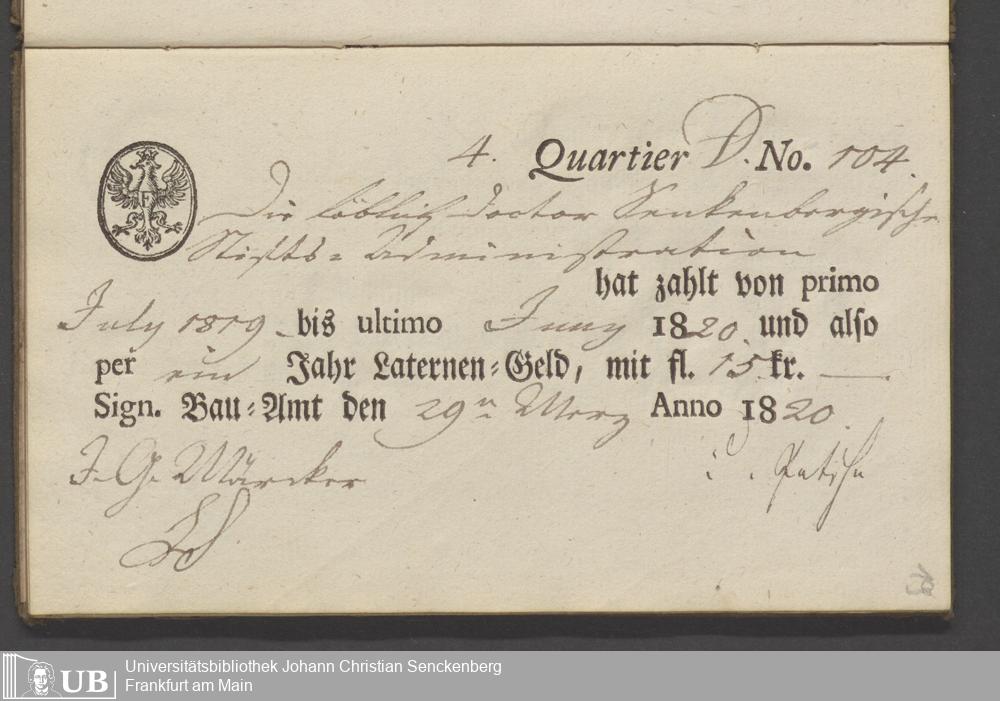 4. Quartier D. No. 104.
Die löblich Doctor Senkenbergische
Stifts-Administration
hat zahlt von primo
July 1819 bis ultimo Juny 1820. und also
per ein Jahr Laternen-Geld, mit fl. 15. kr. —.
Sign. Bau-Amt den 29n Merz Anno 1820.
J. G. Märcker
UB
Universitätsbibliothek Johann Christian Senckenberg
Frankfurt am Main